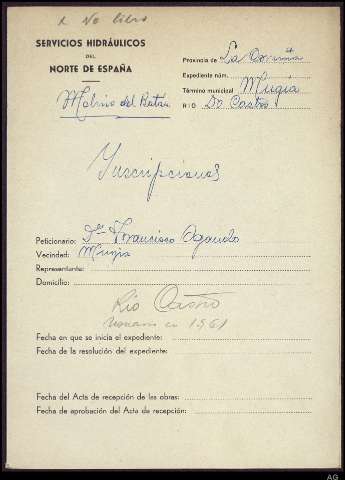 No libro
SERVICIOS HIDRÁULICOS
DEL
NORTE DE ESPAÑA
Provincia de La Coruña
Expediente núm.
Término municipal Mugia
RIO Do Castro
Molino del Batán
Inscripciones
Peticionario: Francisco Agando
Vecindad: Mugia
Representante:
Domicilio:
Rio Castro
1961
Fecha en que se inicia el expediente:
Fecha de la resolución del expediente:
Fecha del Acta de recepción de las obras:
Fecha de aprobación del Acta de recepción:
AG